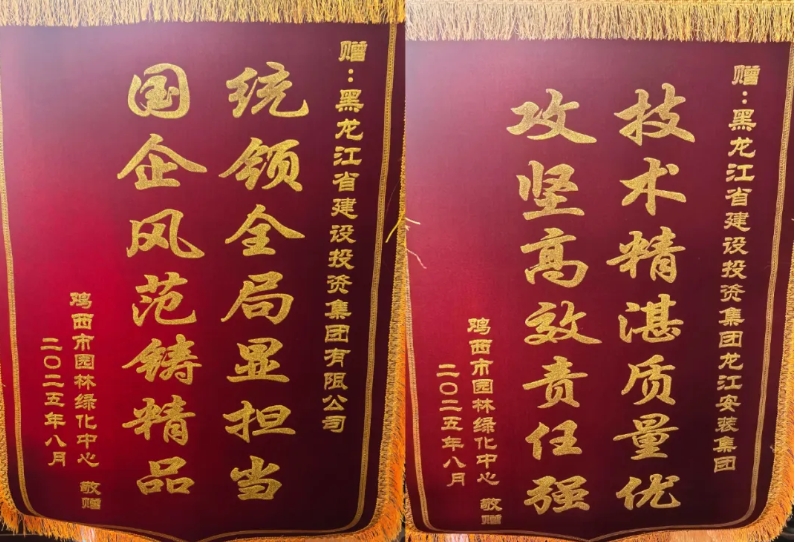 赠：黑龙江省建设投资集团有限公司
统领全局显担当
国企风范铸精品
鸡西市园林绿化中心 敬赠
二〇二五年八月
赠：黑龙江省建设投资集团龙江安装集团
技术精湛质量优
攻坚高效责任强
鸡西市园林绿化中心 敬赠
二〇二五年八月